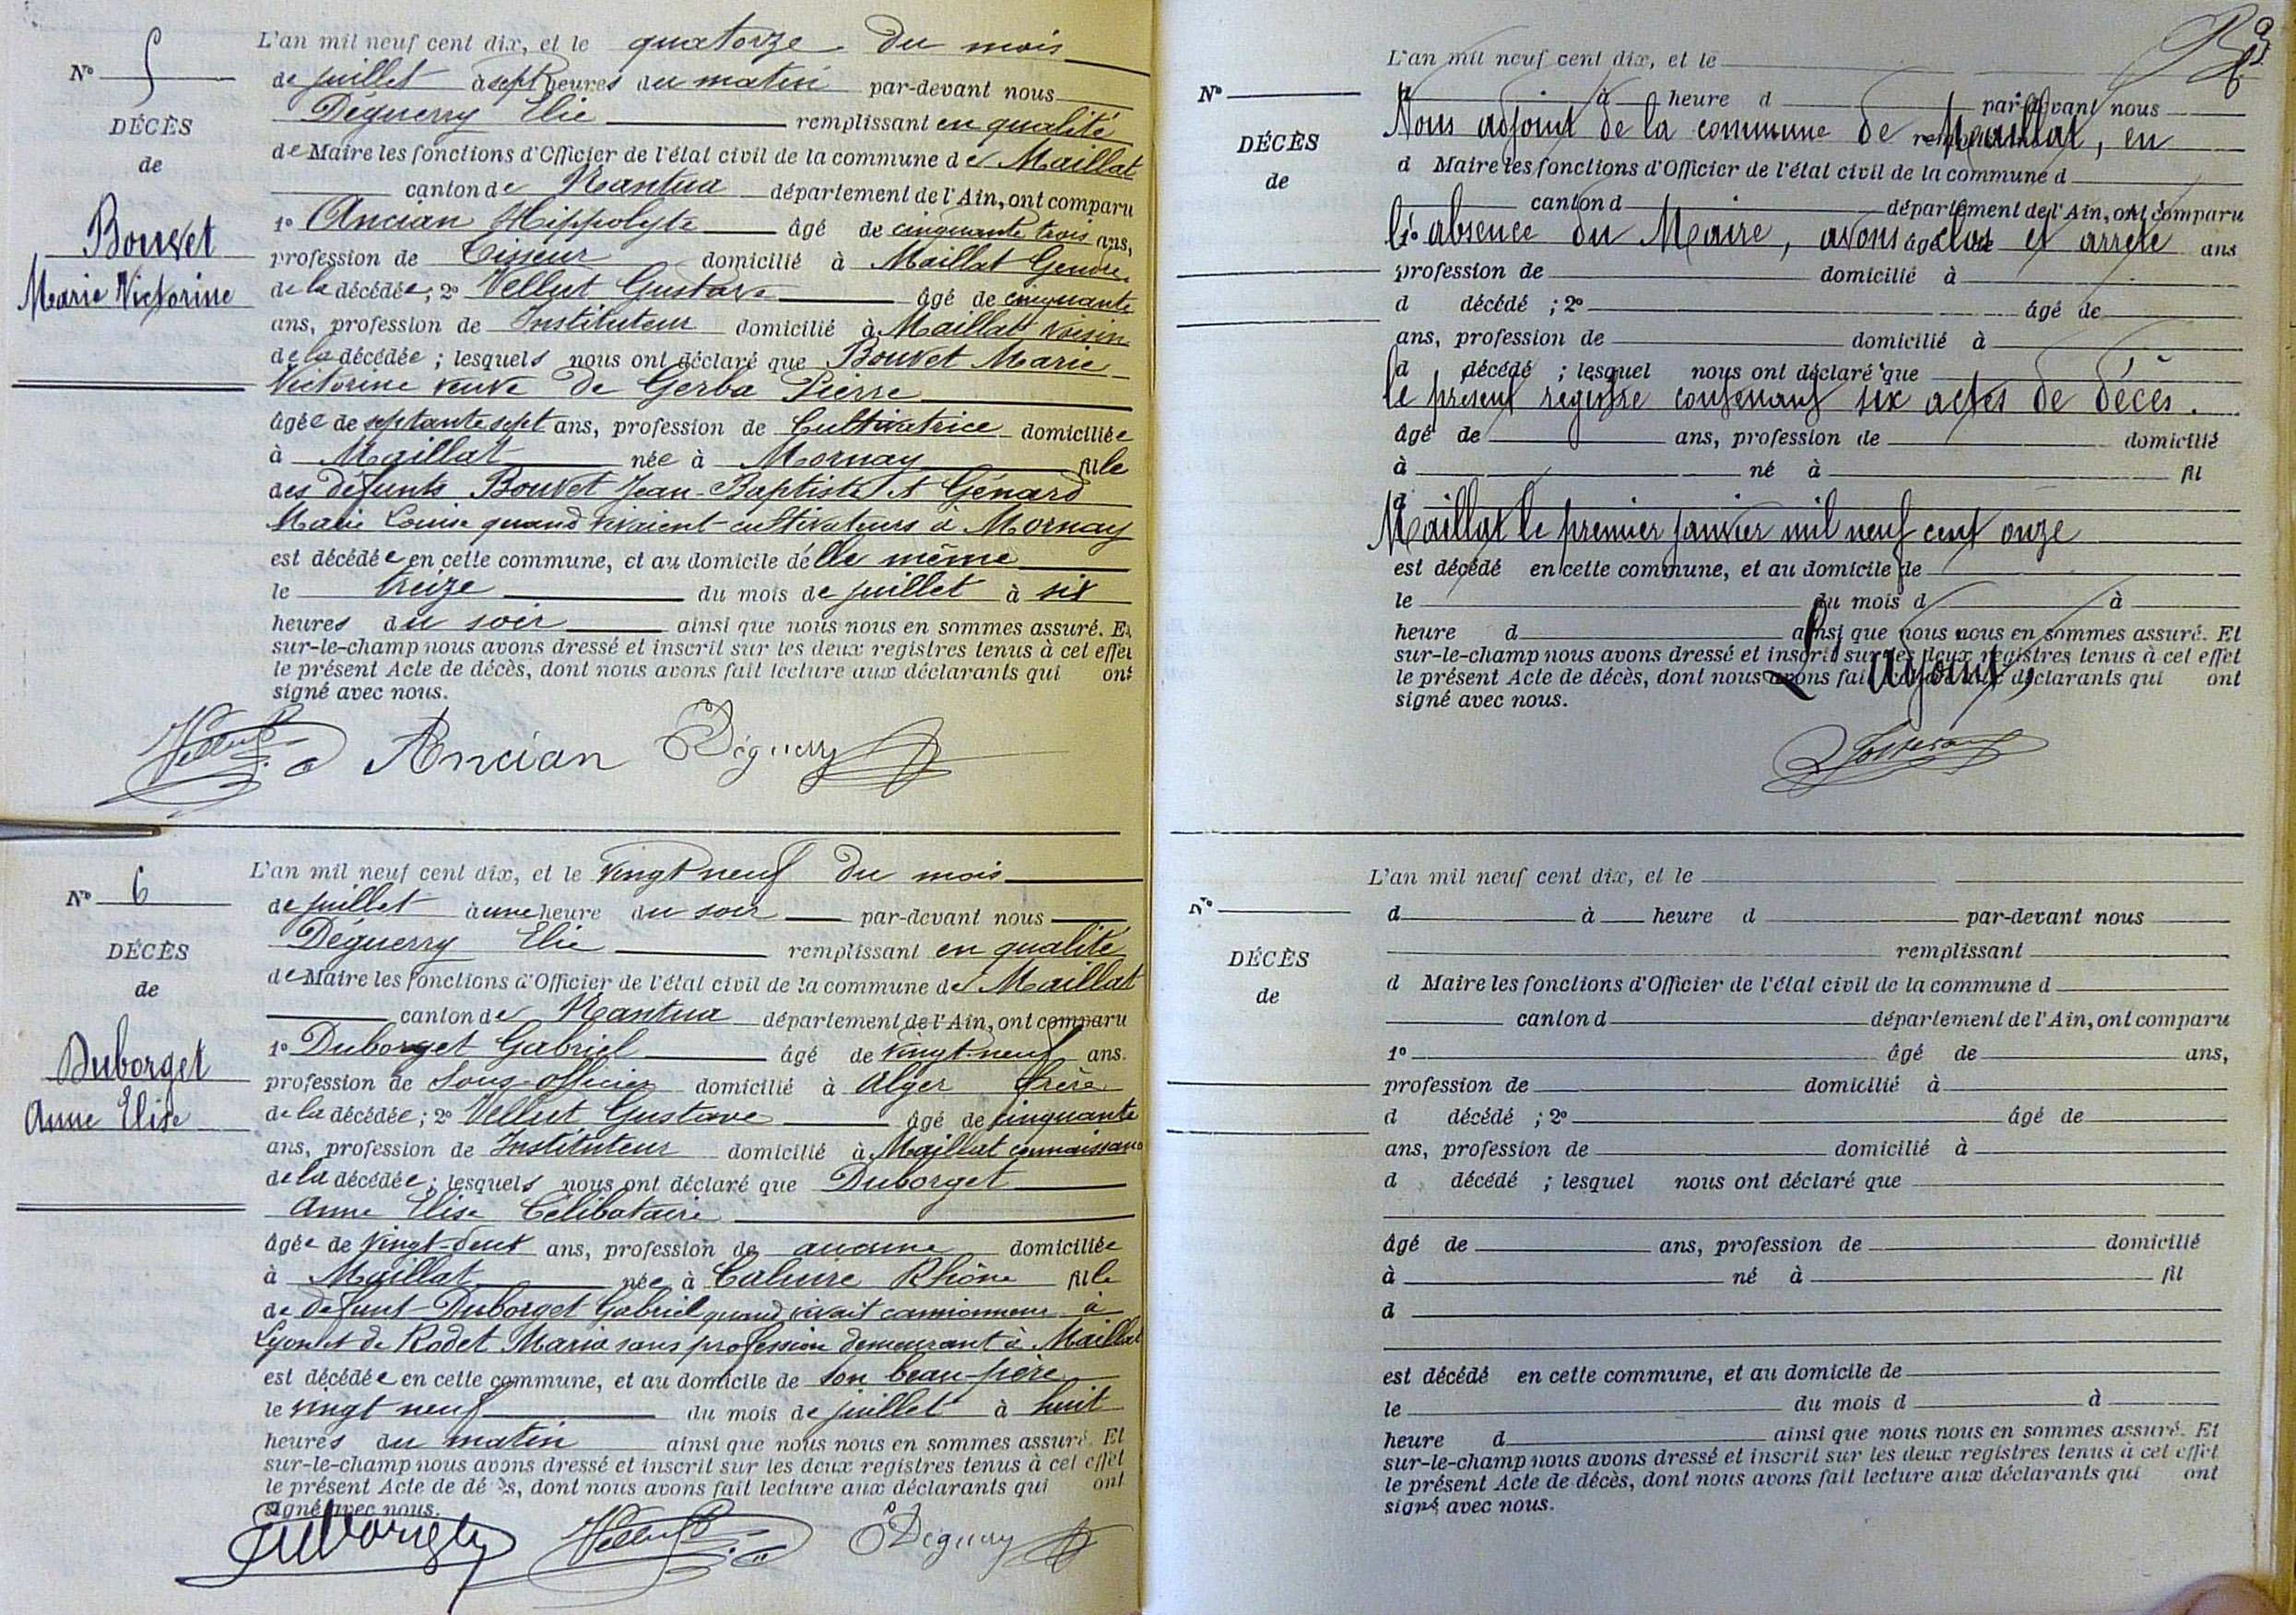 N° 5
DÉCÈS
de
Bouvet
Marie Victorine
L'an mil neuf cent dix, et le quatorze du mois
de juillet à sept heures du matin par-devant nous
Déguerry Elie remplissant en qualité
de Maire les fonctions d'Officier de l'état civil de la commune de Maillat
canton de Nantua département de l'Ain, ont comparu
1° Ancian Hippolyte âgé de cinquante trois ans,
profession de Tisseur domicilié à Maillat Gendre
de la décédée; 2° Vellut Gustave âgé de cinquante
ans, profession de Instituteur domicilié à Maillat voisin
de la décédée; lesquels nous ont déclaré que Bouvet Marie
Victorine veuve de Gerba Pierre
âgée de septante sept ans, profession de Cultivatrice domiciliée
à Maillat née à Mornay fille
des défunts Bouvet Jean-Baptiste et Génard
Marie Louise quand vivaient cultivateurs à Mornay
est décédée en cette commune, et au domicile d'elle même
le treize du mois de juillet à six
heures du soir ainsi que nous nous en sommes assuré. Et
sur-le-champ nous avons dressé et inscrit sur les deux registres tenus à cet effet
le présent Acte de décès, dont nous avons fait lecture aux déclarants qui ont
signé avec nous.
Vellut Ancian Déguerry
N° 6
DÉCÈS
de
Duborget
Anne Elise
L'an mil neuf cent dix, et le vingt neuf du mois
de juillet à une heure du soir par-devant nous
Déguerry Elie remplissant en qualité
de Maire les fonctions d'Officier de l'état civil de la commune de Maillat
canton de Nantua département de l'Ain, ont comparu
1° Duborget Gabriel âgé de vingt-neuf ans.
profession de Sous-officier domicilié à Alger frère
de la décédée; 2° Vellut Gustave âgé de cinquante
ans, profession de Instituteur domicilié à Maillat connaissance
de la décédée; lesquels nous ont déclaré que Duborget
Anne Elise Célibataire
âgée de vingt-deux ans, profession de aucune domiciliée
à Maillat née à Caluire Rhône fille
de défunt Duborget Gabriel quand vivait camionneur à
Lyon et de Rodet Maria sans profession demeurant à Maillat
est décédée en cette commune, et au domicile de son beau-père
le vingt neuf du mois de juillet à huit
heures du matin ainsi que nous nous en sommes assuré. Et
sur-le-champ nous avons dressé et inscrit sur les deux registres tenus à cet effet
le présent Acte de décès, dont nous avons fait lecture aux déclarants qui ont
signé avec nous.
Vellut Déguerry
N°
DÉCÈS
de
L'an mil neuf cent dix, et le
à heure d par-devant nous
Nous adjoint de la commune de Maillat, en
d Maire les fonctions d'Officier de l'état civil de la commune d
canton d département de l'Ain, ont comparu
l'absence du Maire, avons clos et arrêté
1° âgé de ans
profession de domicilié à
d décédé ; 2° âgé de
ans, profession de domicilié à
d décédé ; lesquel nous ont déclaré que
le présent registre contenant six actes de décès.
âgé de ans, profession de domicilié
à né à fil
d
Maillat le premier janvier mil neuf cent onze
est décédé en cette commune, et au domicile de
le du mois d à
heure d ainsi que nous nous en sommes assuré. Et
sur-le-champ nous avons dressé et inscrit sur les deux registres tenus à cet effet
L'adjoint,
le présent Acte de décès, dont nous avons fait déclarants qui ont
signé avec nous.
N°
DÉCÈS
de
L'an mil neuf cent dix, et le
d à heure d par-devant nous
remplissant
d Maire les fonctions d'Officier de l'état civil de la commune d
canton d département de l'Ain, ont comparu
1° âgé de ans,
profession de domicilié à
d décédé ; 2° âgé de
ans, profession de domicilié à
d décédé ; lesquel nous ont déclaré que
âgé de ans, profession de domicilié
à né à fil
d
est décédé en cette commune, et au domicile de
le du mois d à
heure d ainsi que nous nous en sommes assuré. Et
sur-le-champ nous avons dressé et inscrit sur les deux registres tenus à cet effet
le présent Acte de décès, dont nous avons fait lecture aux déclarants qui ont
signé avec nous.